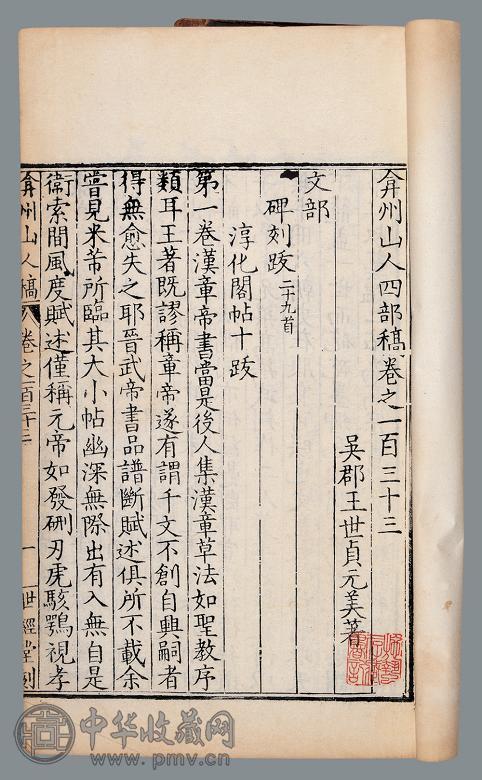 弇州山人四部稿卷之一百三十三
吳郡王世貞元美著
文部
碑刻跋二十九首
淳化閣帖十跋
第一卷漢章帝書當是後人集漢章草法如聖教序
類耳王著既謬稱章帝遂有謂千文不創自興嗣者
得無愈失之耶晉武帝書品譜斷賦述俱所不載余
嘗見米芾所臨其大小帖幽深無際出有入無自是
衛索間風度賦述僅稱元帝如發硎刃虎駭鶚視孝
弇州山人稿 卷之一百三十三 一 世經堂刻
中华收藏网
www.pmv.cn